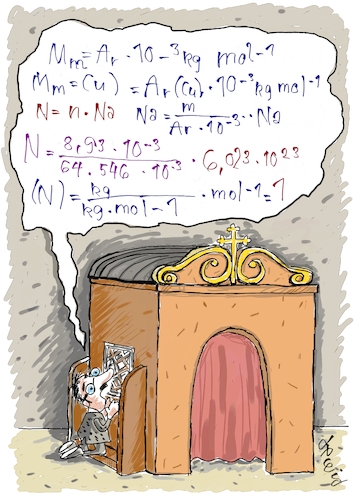 Mm=Ar·10-3kg mol-1
Mm=(u)=Ar(Cu)·10-3kg mol-1
N=n·Na Na=m/Ar·10-3·Na
N=8,93·10-3/64.546·10-3·6,023·1023
(N)=kg/kg·mol-1·mol-1=1